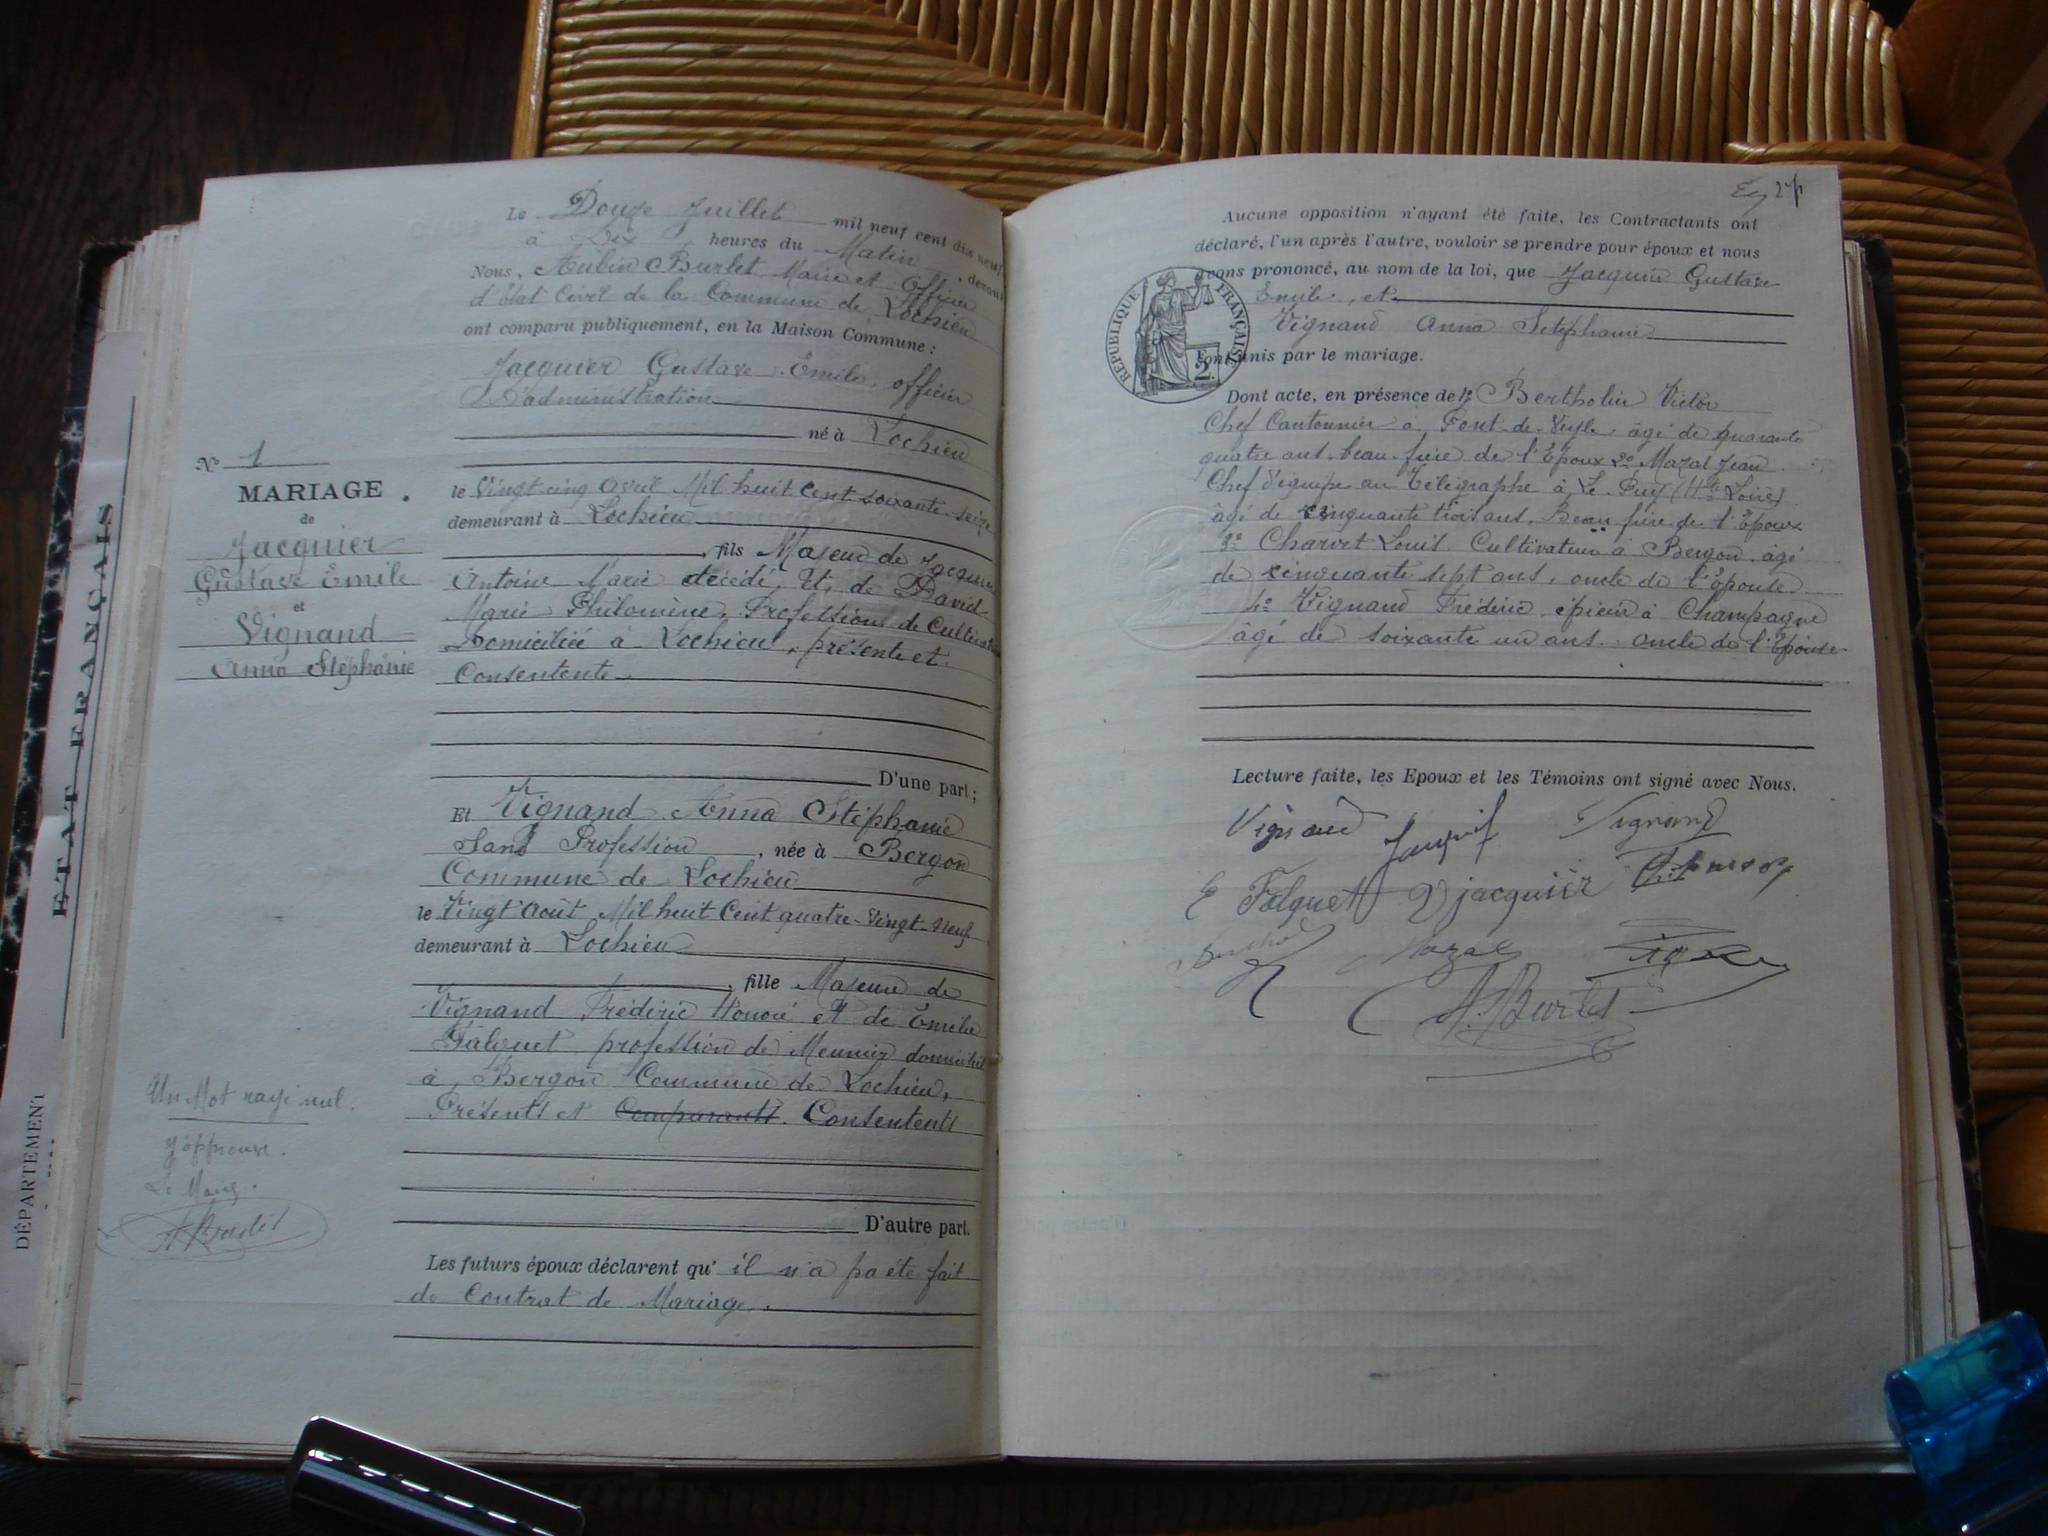 ETAT FRANÇAIS
DÉPARTEMENT
Nº 1
MARIAGE
de
Jacquier
Gustave Emile
et
Vignand
Anna Stéphanie
Un Mot rayé nul.
J'approuve.
Le Maire.
A Burlet
Le Douze Juillet mil neuf cent dix neuf
à Dix heures du Matin, devant
Nous, Aubin Burlet Maire et Officier
d'État Civil de la Commune de Lochieu
ont comparu publiquement, en la Maison Commune :
Jacquier Gustave Emile, officier
D'administration
né à Lochieu
le Vingt cinq avril Mil huit Cent soixante-seize
demeurant à Lochieu
, fils Majeur de Jacquier
Antoine Marie décédé, Et de David
Marie Philomène, Profession de Cultivateur
Domiciliée à Lochieu, présente et
Consentente
D'une part ;
Et Vignand Anna Stéphanie
Sans Profession, née à Bergon
Commune de Lochieu
le Vingt Août Mil huit Cent quatre-Vingt-Neuf
demeurant à Lochieu
, fille Majeure de
Vignand Frédéric Honoré et de Emélie
Falquet profession de Meunier domiciliés
à Bergon Commune de Lochieu,
Présents et Comparants. Consentents
D'autre part.
Les futurs époux déclarent qu'il n'a pa été fait
de Contrat de Mariage.
Aucune opposition n'ayant été faite, les Contractants ont
déclaré, l'un après l'autre, vouloir se prendre pour époux et nous
avons prononcé, au nom de la loi, que Jacquier Gustave
Emile, et
Vignand Anna Stéphanie
sont unis par le mariage.
RÉPUBLIQUE FRANÇAISE
2
Dont acte, en présence de 1º Bertholin Victor
Chef Cantonnier à Pont-de-Veyle âgé de quarante
quatre ans. beau-frère de l'Époux 2º Mazal Jean
Chef d'équipe au Télégraphe à Le Puy (Hte Loire)
âgé de cinquante trois ans. Beau frère de l'Époux
3º Charvet Louis. Cultivateur à Bergon, âgé
de cinquante sept ans, oncle de l'Épouse
4º Vignand Frédéric épicier à Champagne
âgé de soixante un ans. oncle de l'Épouse
Lecture faite, les Epoux et les Témoins ont signé avec Nous.
Vignand Jacquier Vignand
E Falquet V jacquier
Mazal
A. Burlet